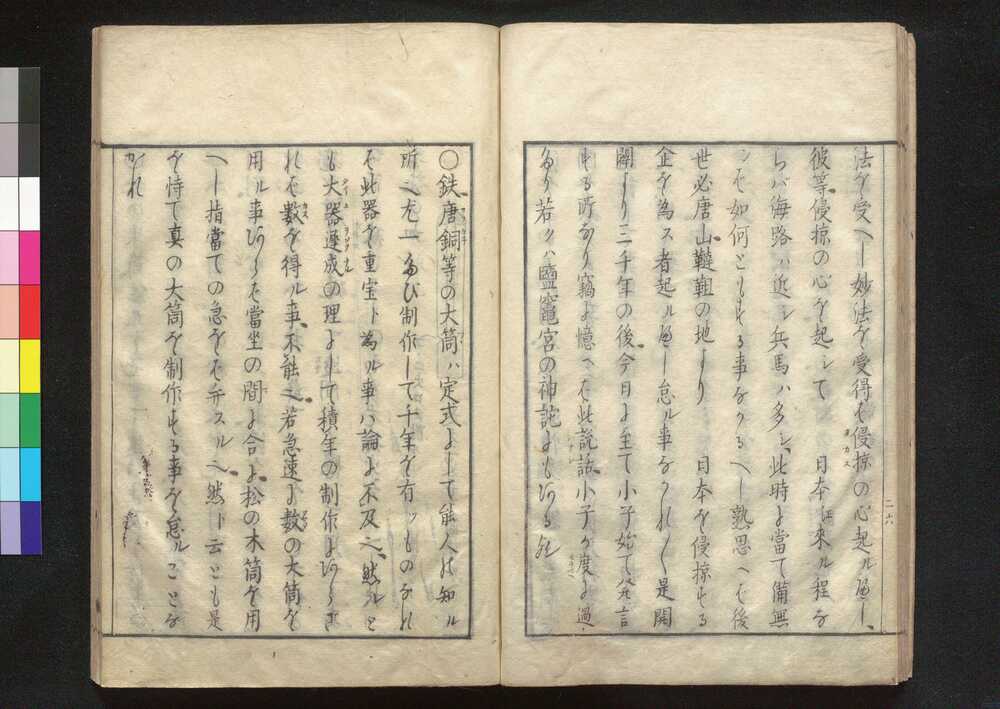 法を受べし妙法を受得ば侵掠の心起ル べし、
彼等侵掠の心を起シて 日本江來ル程な
らバ海路ハ近シ兵馬ハ多シ、此時に當て備無
ンば如何ともする事なかるべし熟思へば後
世必唐山韃靼の地より 日本を侵掠する
企を為ス者起ル べし怠ル事なかれ〱是開
闢より三千年の後今日に至て小子始て発言
する所なり竊に憶へば此説話小子が度に過
たり若クハ鹽竈宮の神託にもあるか
二十六
○鉄唐銅等の大筒ハ定式にして能人の知ル
所也尤一たび制作して千年を有ツものなれ
ば此器を重宝ト為ル事ハ論に不及也、然ルと
も大器遅成の理にして積年の制作にあらざ
れば数を得ル事不能也若急速に数の大筒を
用ル事あらば當坐の間に合に松の木筒を用
べし指當ての急をば弁スル也然ト云とも是
を恃て真の大筒を制作する事を怠ルことな
かれ